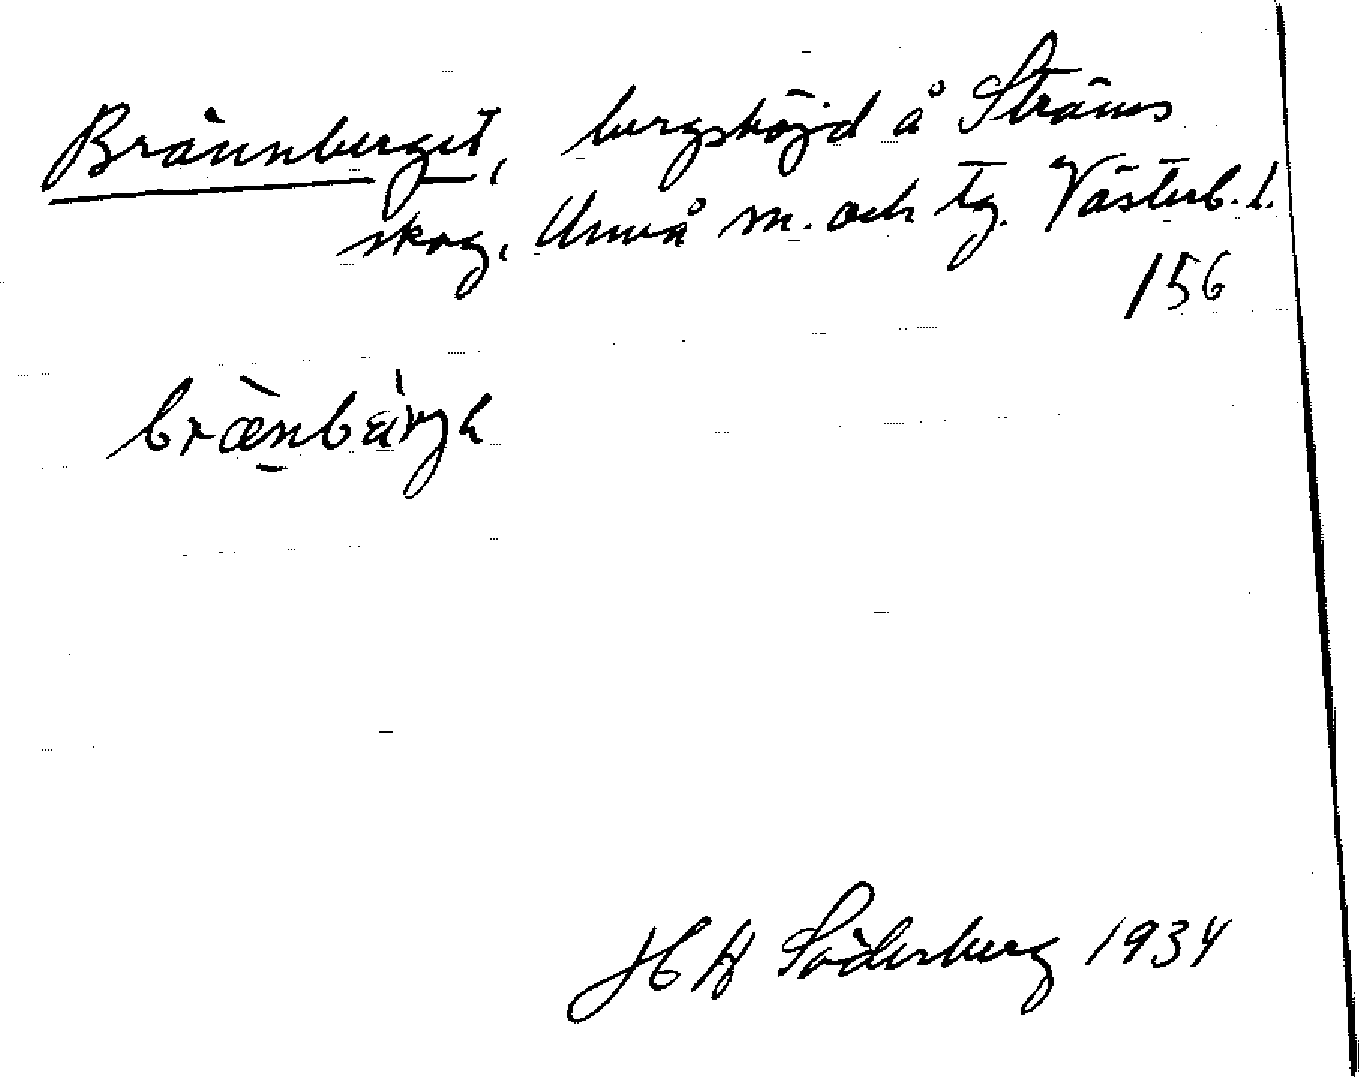 Brännberget, bergshöjd å Ströms
skog, Umeå sn. och tg. Västerb. l.
156
brænbärjh
H A Söderberg 1934